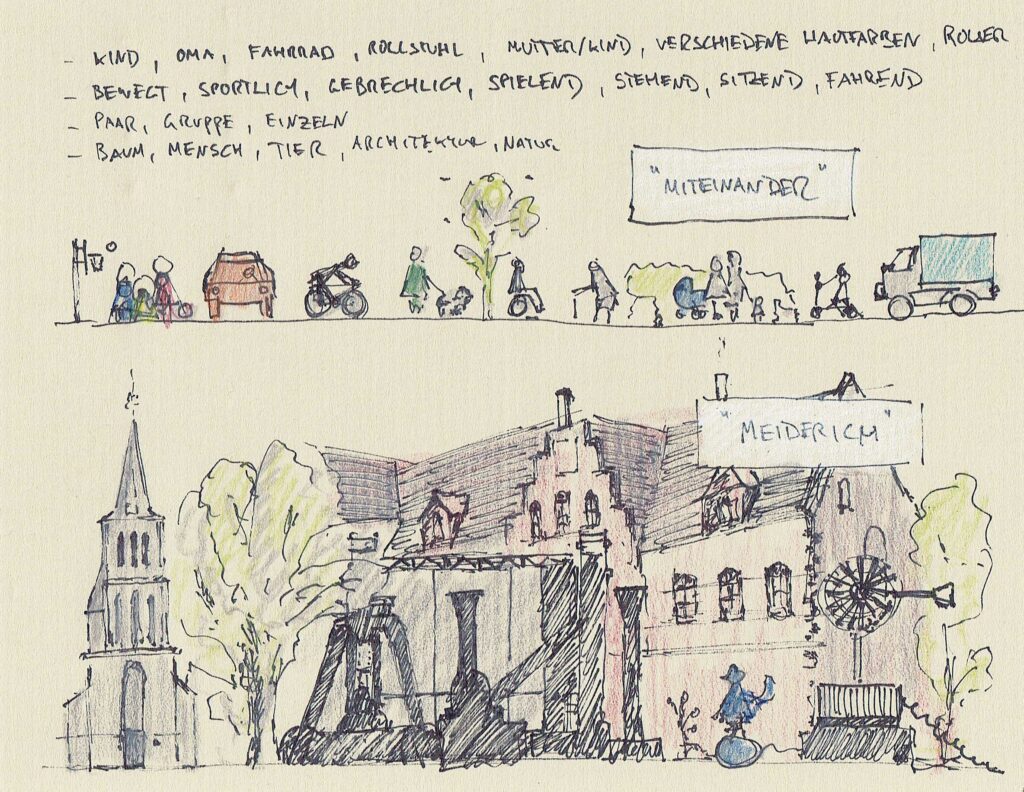 - KIND, OMA, FAHRRAD, ROLLSTUHL, MUTTER/KIND, VERSCHIEDENE HAUTFARBEN, ROLLER
- BEWEGT, SPORTLICH, GEBRECHLICH, SPIELEND, STEHEND, SITZEND, FAHREND
- PAAR, GRUPPE, EINZELN
- BAUM, MENSCH, TIER, ARCHITEKTUR, NATUR
"MITEINANDER"
"MEIDERICH"